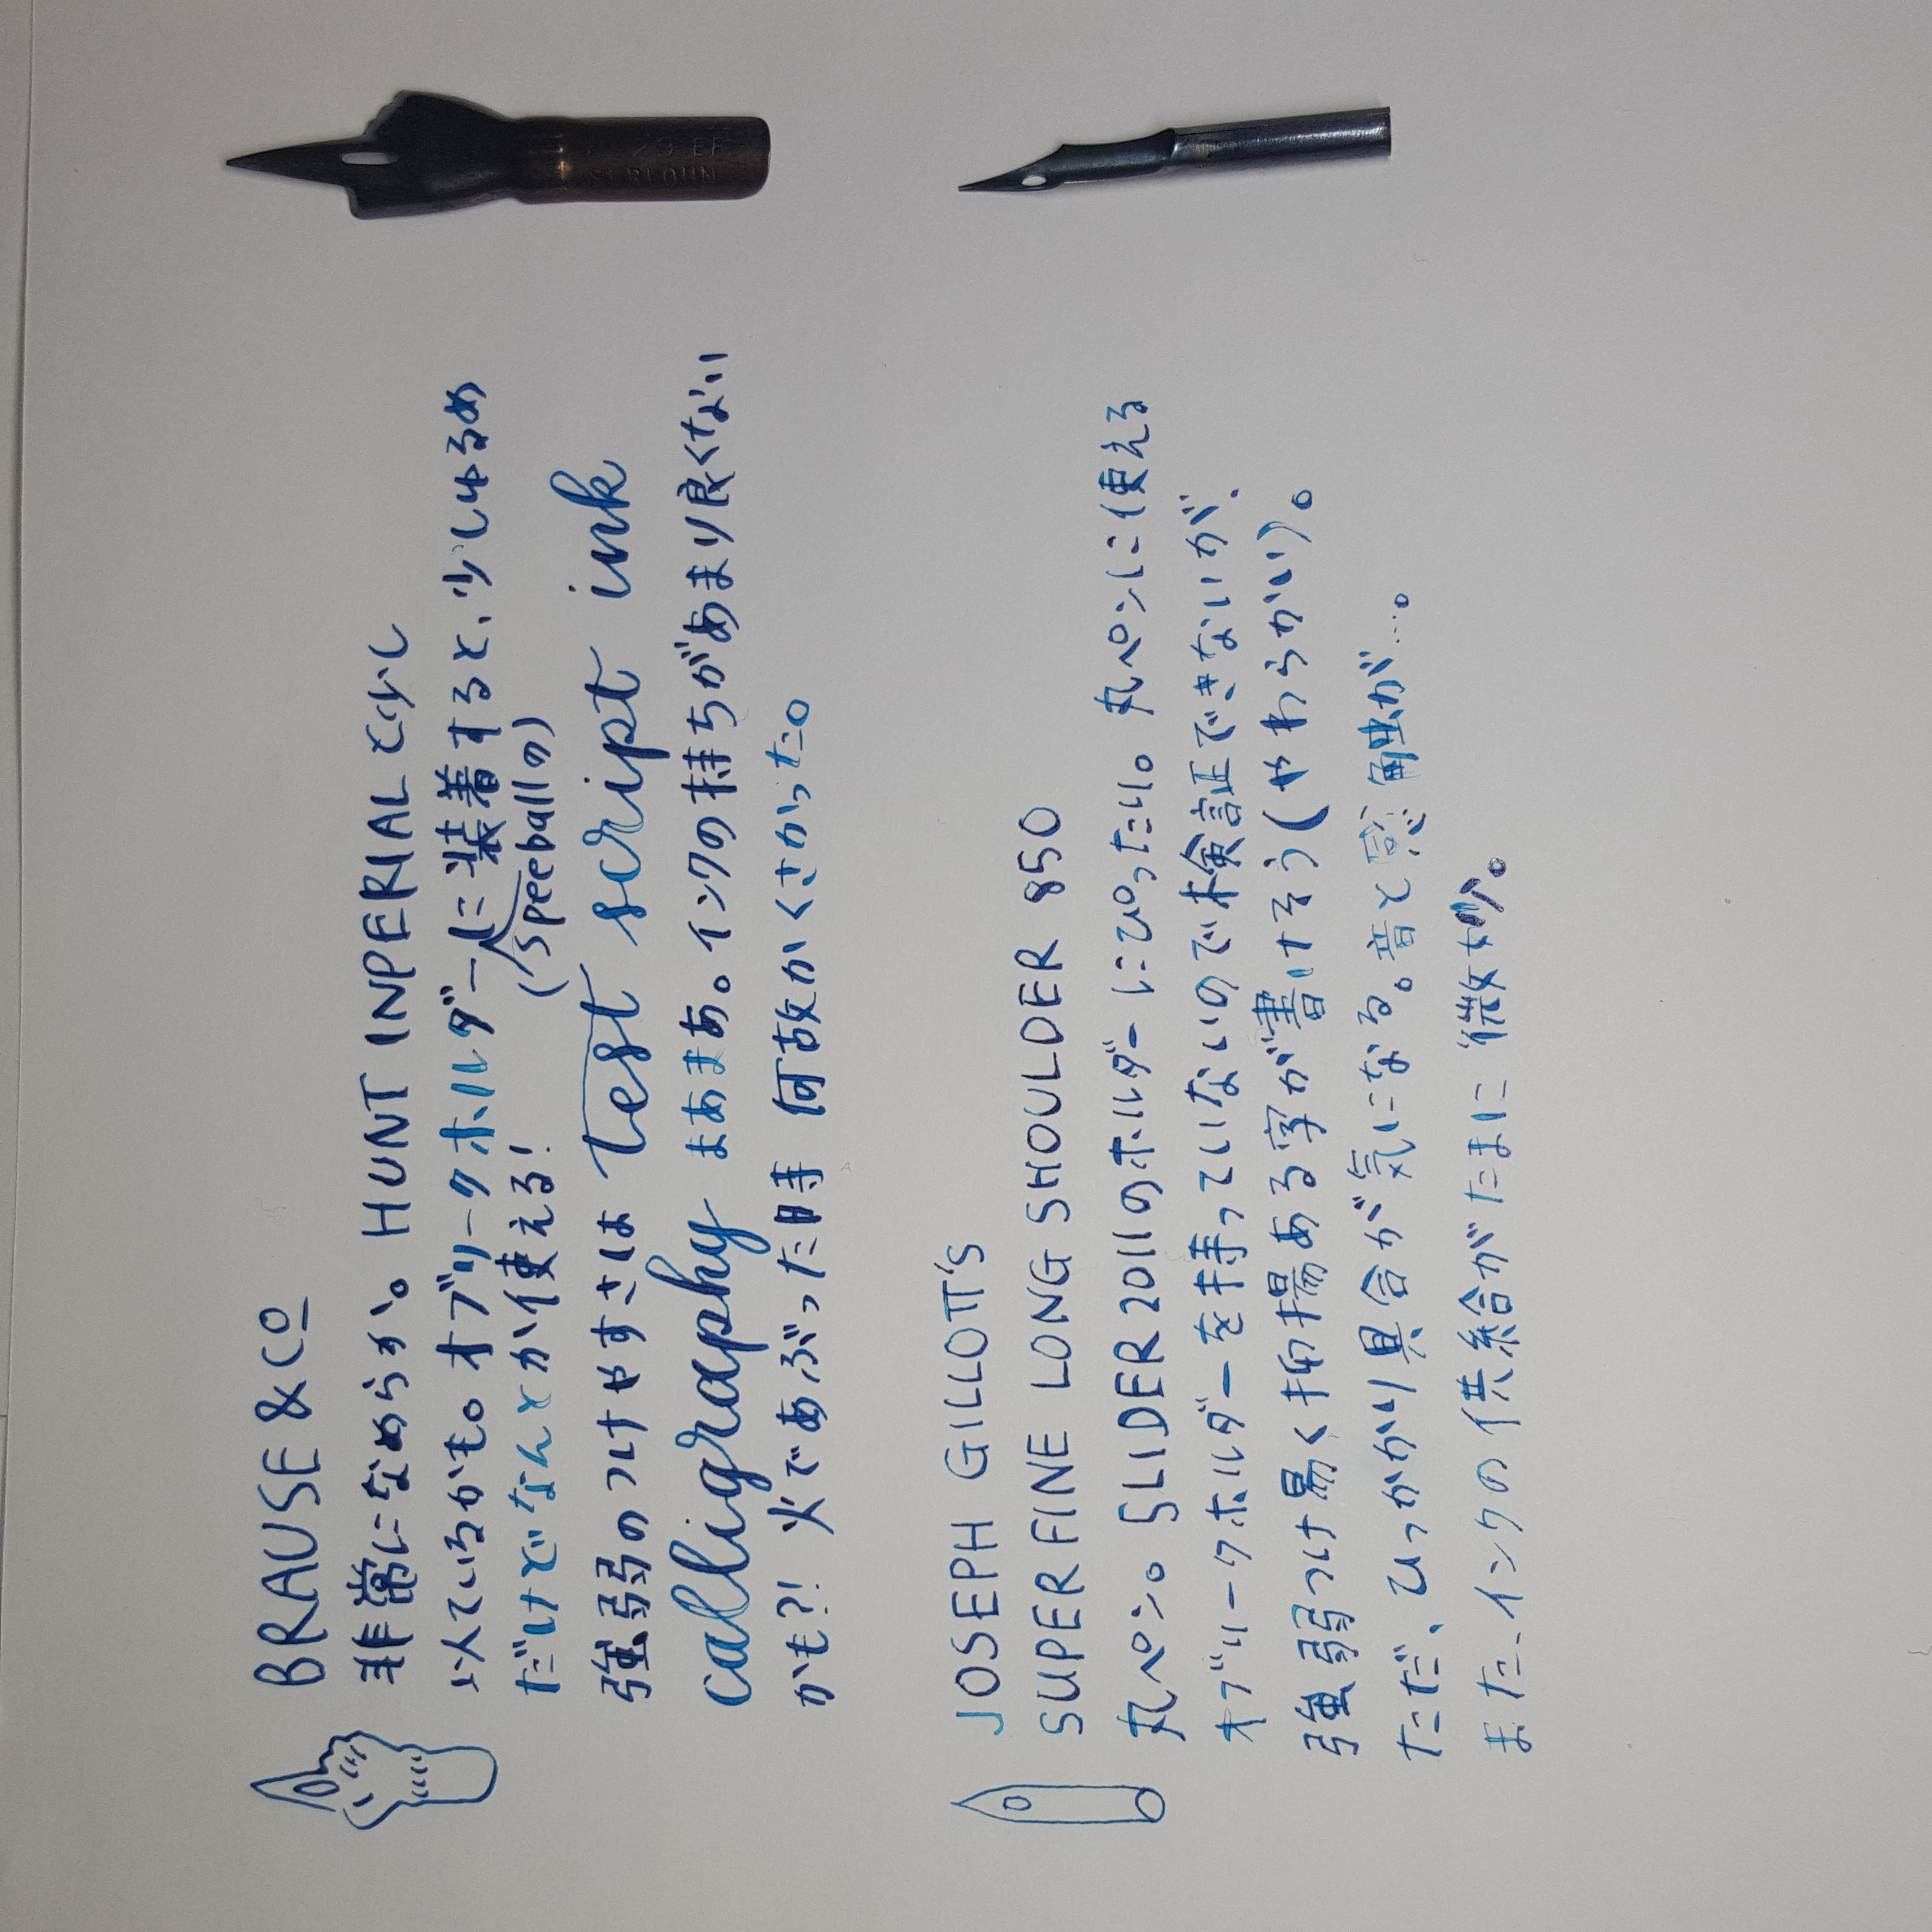 BRAUSE & CO
非常になめらか。HUNT INPERIAL と少し
以ているかも。オブリークホルダーに装着すると、少しゆるめ
(Speeballの)
だけでなんとか使える!
強弱のつけやすさは Test script ink
calligraphy まあまあ。インクの持ちがあまり良くない
かも?! 火であぶった時 何故かくさかった。
JOSEPH GILLOTT'S
SUPERFINE LONG SHOULDER 850
丸ペン。SLIDER 2011のホルダーにぴったり。丸ペンに使える
オブリークホルダーを持っていないので検証できないが、
強弱つけ易く抑揚ある字が書けそう(やわらかい)。
ただ、ひっかかり具合が気になる。音と感触が…。
また、インクの供給がたまに微妙。
29 EF
ISERLOHN